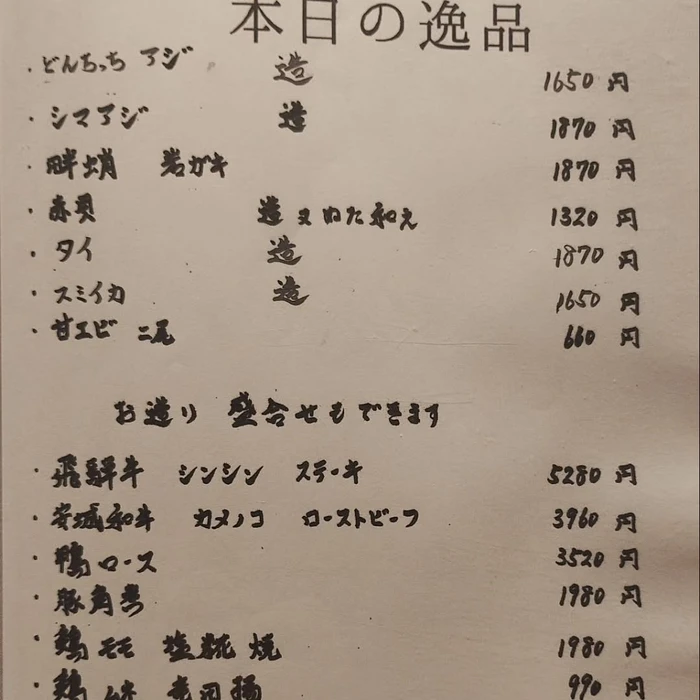 本日の逸品
・どんちっち アジ 造 1650円
・シマアジ 造 1870円
・畔蛸 岩ガキ 1870円
・赤貝 造 又 ぬた和え 1320円
・タイ 造 1870円
・スミイカ 造 1650円
・甘エビ 二尾 660円
お造り 盛合せもできます
・飛騨牛 シンシン ステーキ 5280円
・安城和牛 カメノコ ローストビーフ 3960円
・鴨ロース 3520円
・豚角煮 1980円
・鶏モモ 塩糀焼 1980円
・鶏ムネ 竜田揚 990円